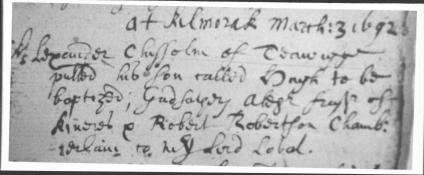 at Kilmorak March: 3 1692
Alexander Chissolm of Teawigge
pntted his son called Hugh to be
baptized; Gudsavery Alexr frass of
Kineres & Robert Robertson Chamb:
:erlain to my Lord Lovat.